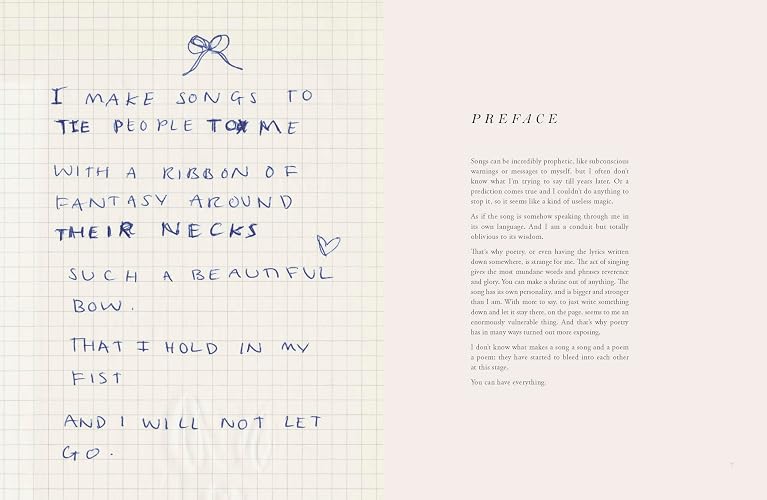 I MAKE SONGS TO
TIE PEOPLE TO ME
WITH A RIBBON OF
FANTASY AROUND
THEIR NECKS
SUCH A BEAUTIFUL
BOW.
THAT I HOLD IN MY
FIST
AND I WILL NOT LET
GO.
PREFACE
Songs can be incredibly prophetic, like subconscious
warnings or messages to myself, but I often don't
know what I'm trying to say till years later. Or a
prediction comes true and I couldn't do anything to
stop it, so it seems like a kind of useless magic.
As if the song is somehow speaking through me in
its own language. And I am a conduit but totally
oblivious to its wisdom.
That's why poetry, or even having the lyrics written
down somewhere, is strange for me. The act of singing
gives the most mundane words and phrases reverence
and glory. You can make a shrine out of anything. The
song has its own personality, and is bigger and stronger
than I am. With more to say. to just write something
down and let it stay there, on the page, seems to me an
enormously vulnerable thing. And that's why poetry
has in many ways turned out more exposing.
I don't know what makes a song a song and a poem
a poem: they have started to bleed into each other
at this stage.
You can have everything.